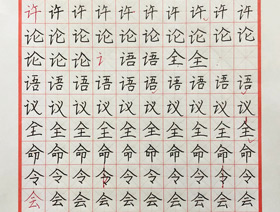 许许许许许许许许许
论论论论论论论论论
论论论讠语语全全
语语语语语语语语语
议议议议议议议议议
全全全全全全全全全
命命命命命命命命命
令令令令令令令令令
会会会会会会会会会